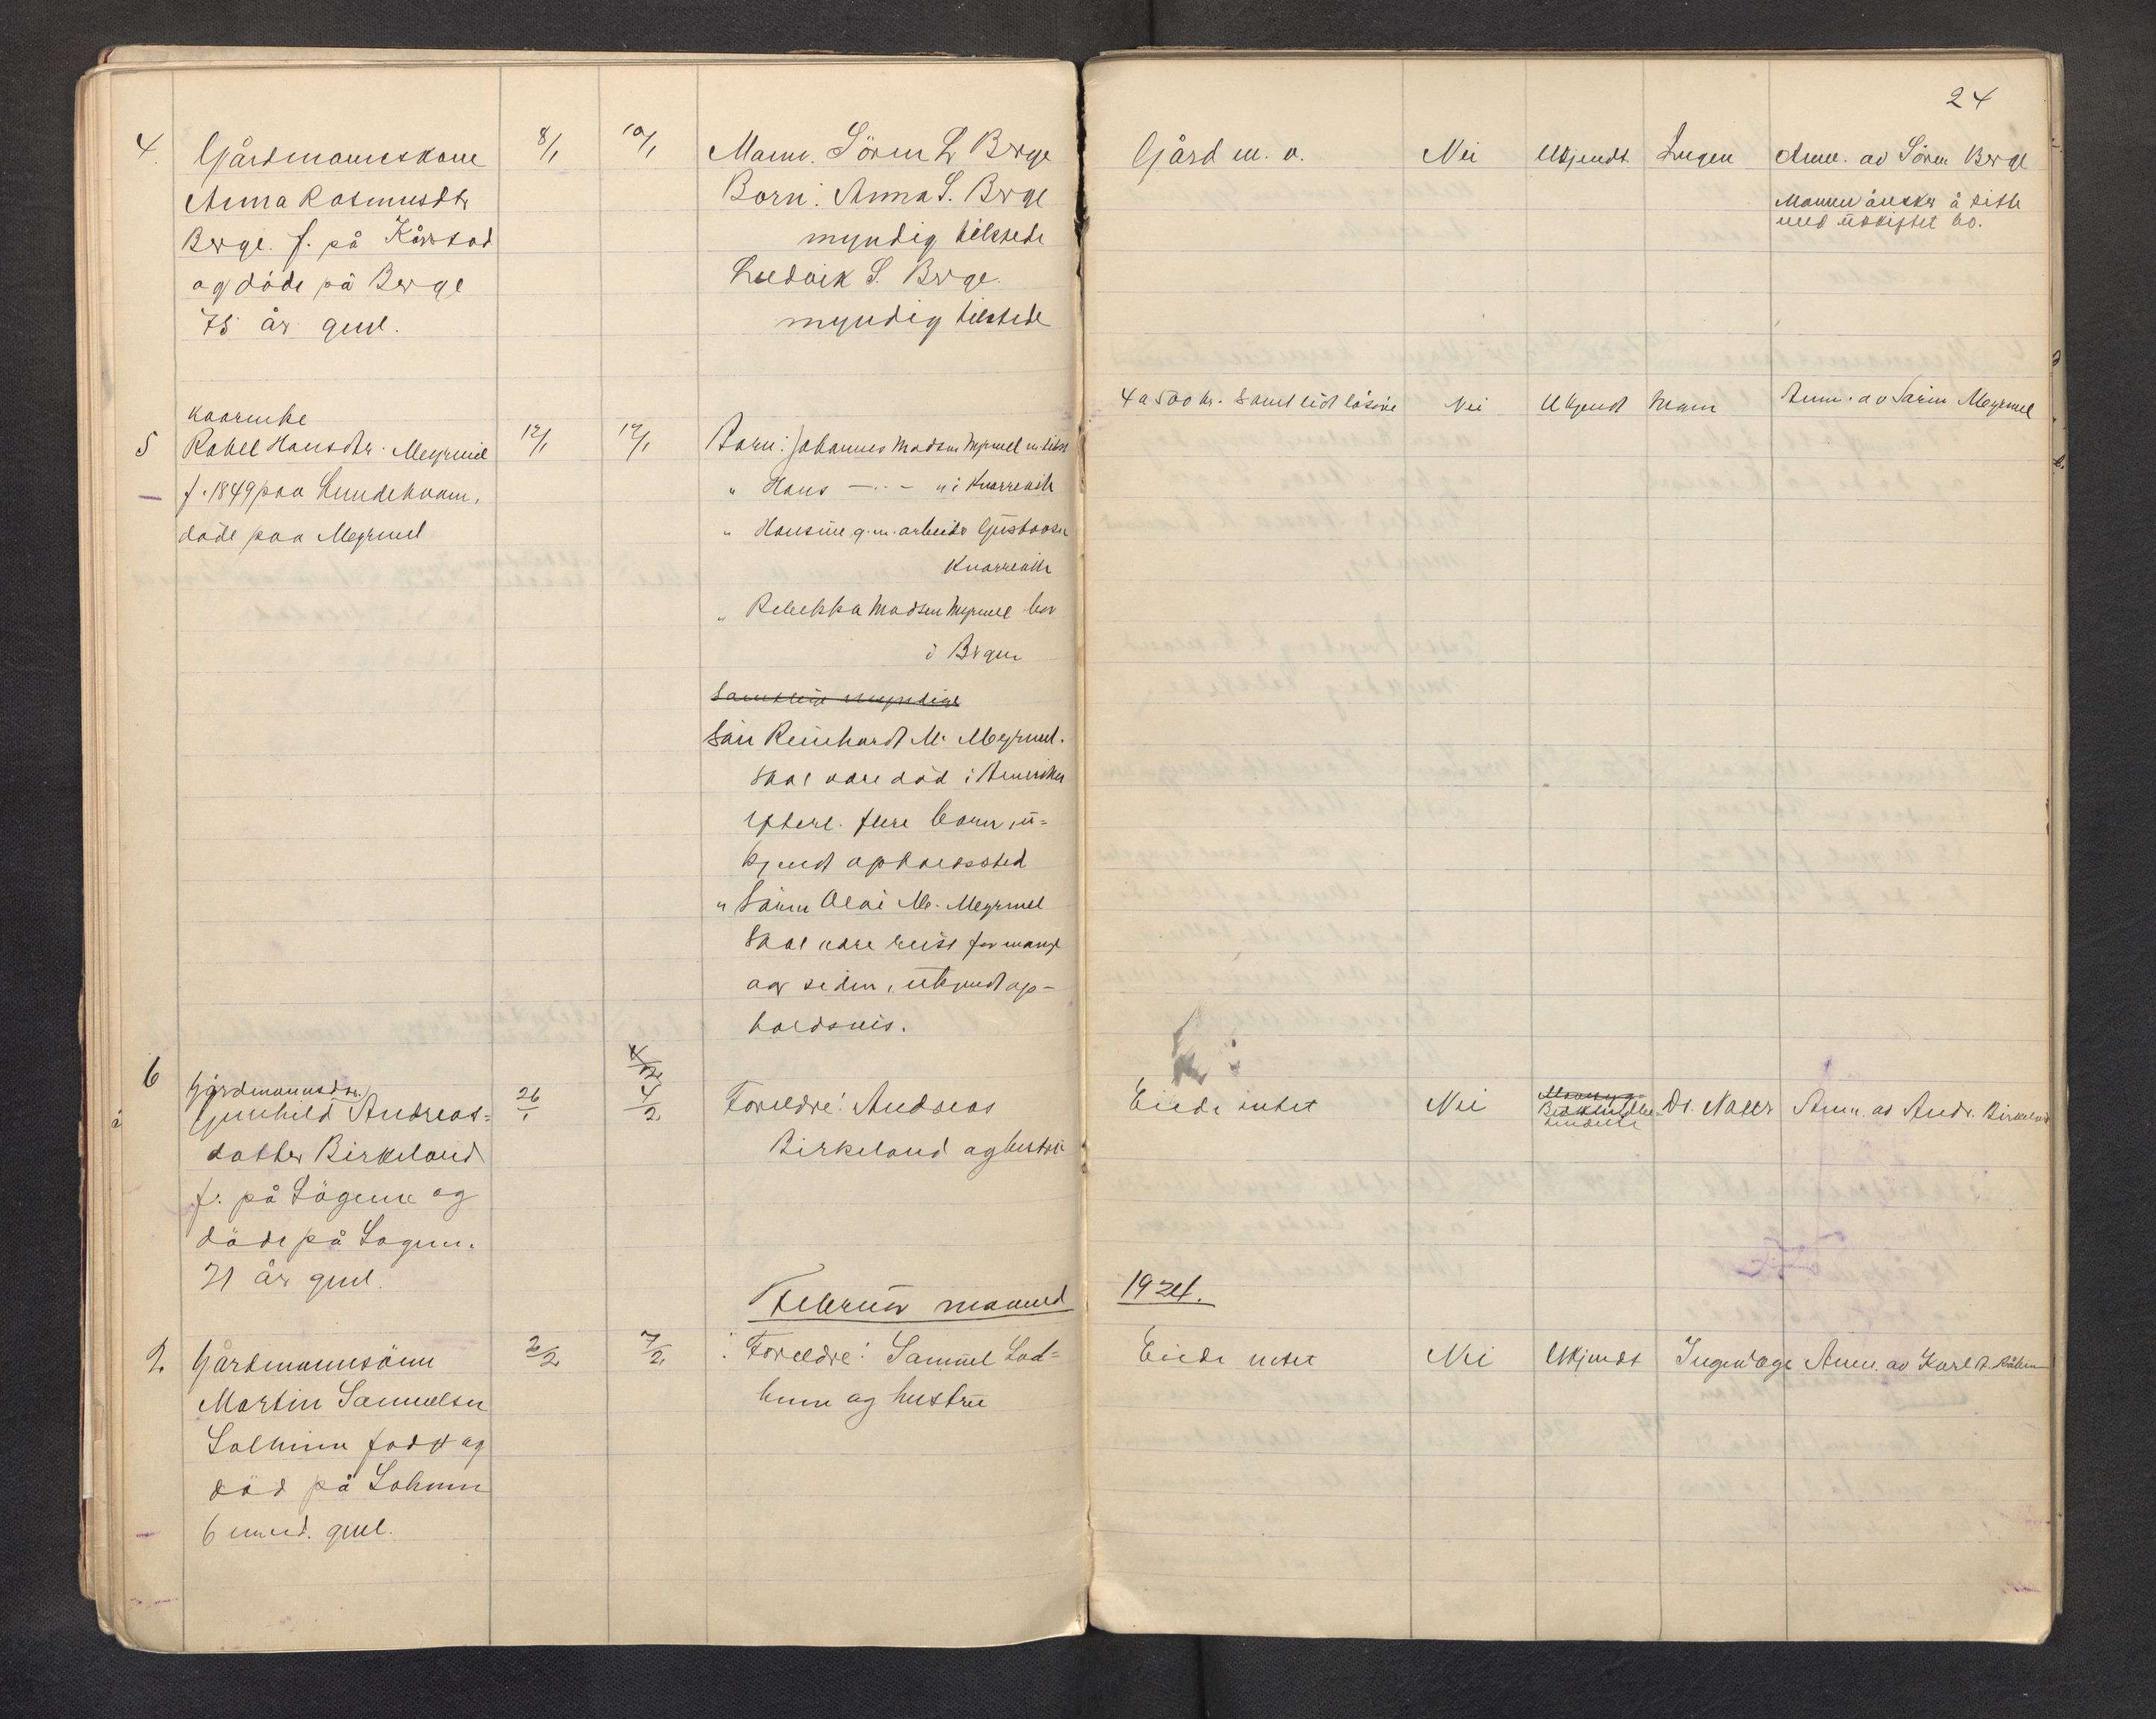 24
4. Gårdmannskone
Anna Rasmusdtr
Berge. f. på Kårstad
og döde på Berge
75 år gml.
8/1
10/1
Mann. Sören L Berge
Born: Anna S. Berge
myndig tilstede
Ludvik S. Berge.
myndig tilstede
Gård m. v.
Nei
Ukjendt
Ingen
Anm. av Sören Berge
Mannen önsker å sitte
med uskiftet bo.
5
Kaarenke
Rakel Hansdtr. Meyrmel
f. 1849 paa Lundekvam,
döde paa Meyrmel
12/1
Barn: Johannes Madsen Myrmel
" Hans — " — " i Knarrevik
" Hansine g.m. arbeider Gustavsen
Knarrevik
" Rebekka Madsen Myrmel bor
i Bergen
Samtlige myndige
Sön Reinhardt M. Meyrmel.
skal være död i Amerika
efterl. flere barn, u=
kjendt opholdssted
" Sönn Olai M. Meyrmel
skal være reist for mange
aar siden, ukjendt op-
holdsvis.
4 a 500 kr. samt lidt lösöre
Nei
Ukjendt
Anm. av Meyrmel
6
Gårdmannsdtr.
Gunhild Andreas=
datter Birkeland
f. på Lögene og
döde på Logen.
21 år gml.
26/1
4/2
4/2
Foreldre: Andreas
Birkeland og hustru
Eiede intet
Nei
Dr. Naur
Anm. av Andr. Birkeland
Februar maaned
1924.
2. Gårdmannsönn
Martin Samuelsen
födt og
död på
6 mned. gml.
2/2
7/2
Foreldre: Samuel
og hustru
Eiede intet
Nei
Ukjendt
Ingen læge
Anm. av Karl A.